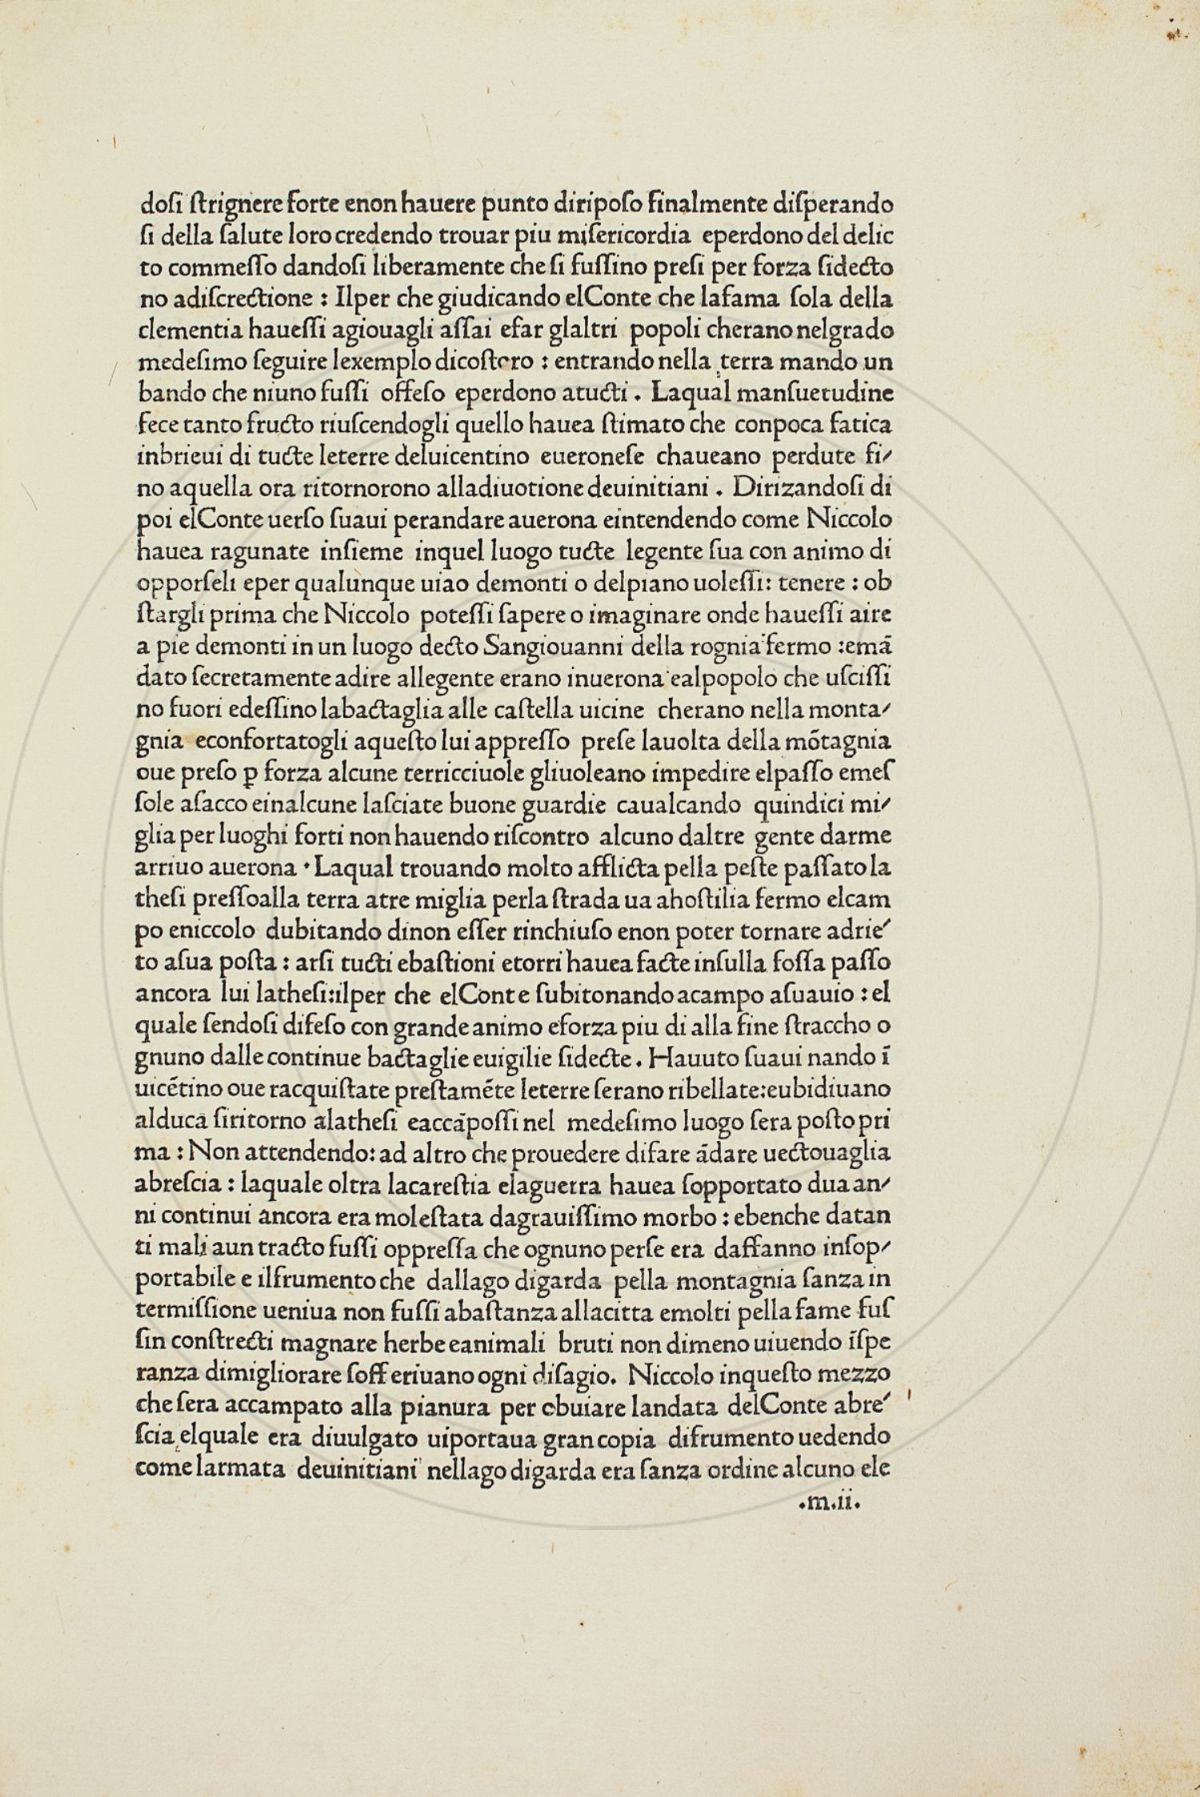 dosi strignere forte enon hauere punto diriposo finalmente disperando
si della salute loro credendo trouar piu misericordia eperdono del delic
to commesso dandosi liberamente che si fussino presi per forza sidecto
no adiscrectione : Ilper che giudicando elConte che lafama sola della
clementia hauessi agiouagli assai efar glaltri popoli cherano nelgrado
medesimo seguire lexemplo dicostoro : entrando nella terra mando un
bando che niuno fussi offeso eperdono atucti . Laqual mansuetudine
fece tanto fructo riuscendogli quello hauea stimato che conpoca fatica
inbrieui di tucte leterre deluicentino eueronese chaueano perdute fi/
no aquella ora ritornorono alladiuotione deuinitiani . Dirizandosi di
poi elConte uerso suaui perandare auerona eintendendo come Niccolo
hauea ragunate insieme inquel luogo tucte legente sua con animo di
opporseli eper qualunque uiao demonti o delpiano uolessi: tenere : ob
stargli prima che Niccolo potessi sapere o imaginare onde hauessi aire
a pie demonti in un luogo decto Sangiouanni della rognia fermo :emā
dato secretamente adire allegente erano inuerona ealpopolo che uscissi
no fuori edessino labactaglia alle castella uicine cherano nella monta/
gnia econfortatogli aquesto lui appresso prese lauolta della mōtagnia
oue preso ꝑ forza alcune terricciuole gliuoleano impedire elpasso emes
sole asacco einalcune lasciate buone guardie caualcando quindici mi/
glia per luoghi forti non hauendo riscontro alcuno daltre gente darme
arriuo auerona · Laqual trouando molto afflicta pella peste passato la
thesi pressoalla terra atre miglia perla strada ua ahostilia fermo elcam
po eniccolo dubitando dinon esser rinchiuso enon poter tornare adrie/
to asua posta : arsi tucti ebastioni etorri hauea facte insulla fossa passo
ancora lui lathesi:ilper che elConte subitonando acampo asuauio : el
quale sendosi difeso con grande animo eforza piu di alla fine straccho o
gnuno dalle continue bactaglie euigilie sidecte . Hauuto suaui nando ī
uicētino oue racquistate prestamēte leterre serano ribellate:eubidiuano
alduca siritorno alathesi eaccāpossi nel medesimo luogo sera posto pri
ma : Non attendendo: ad altro che prouedere difare ādare uectouaglia
abrescia : laquale oltra lacarestia elaguerra hauea sopportato dua an/
ni continui ancora era molestata dagrauissimo morbo : ebenche datan
ti mali aun tracto fussi oppressa che ognuno perse era daffanno insop/
portabile e ilfrumento che dallago digarda pella montagnia sanza in
termissione ueniua non fussi abastanza allacitta emolti pella fame fus
sin constrecti magnare herbe eanimali bruti non dimeno uiuendo īspe
ranza dimigliorare sofferiuano ogni disagio. Niccolo inquesto mezzo
che sera accampato alla pianura per obuiare landata delConte abre/
scia elquale era diuulgato uiportaua gran copia difrumento uedendo
come larmata deuinitiani nellago digarda era sanza ordine alcuno ele
.m.ii.